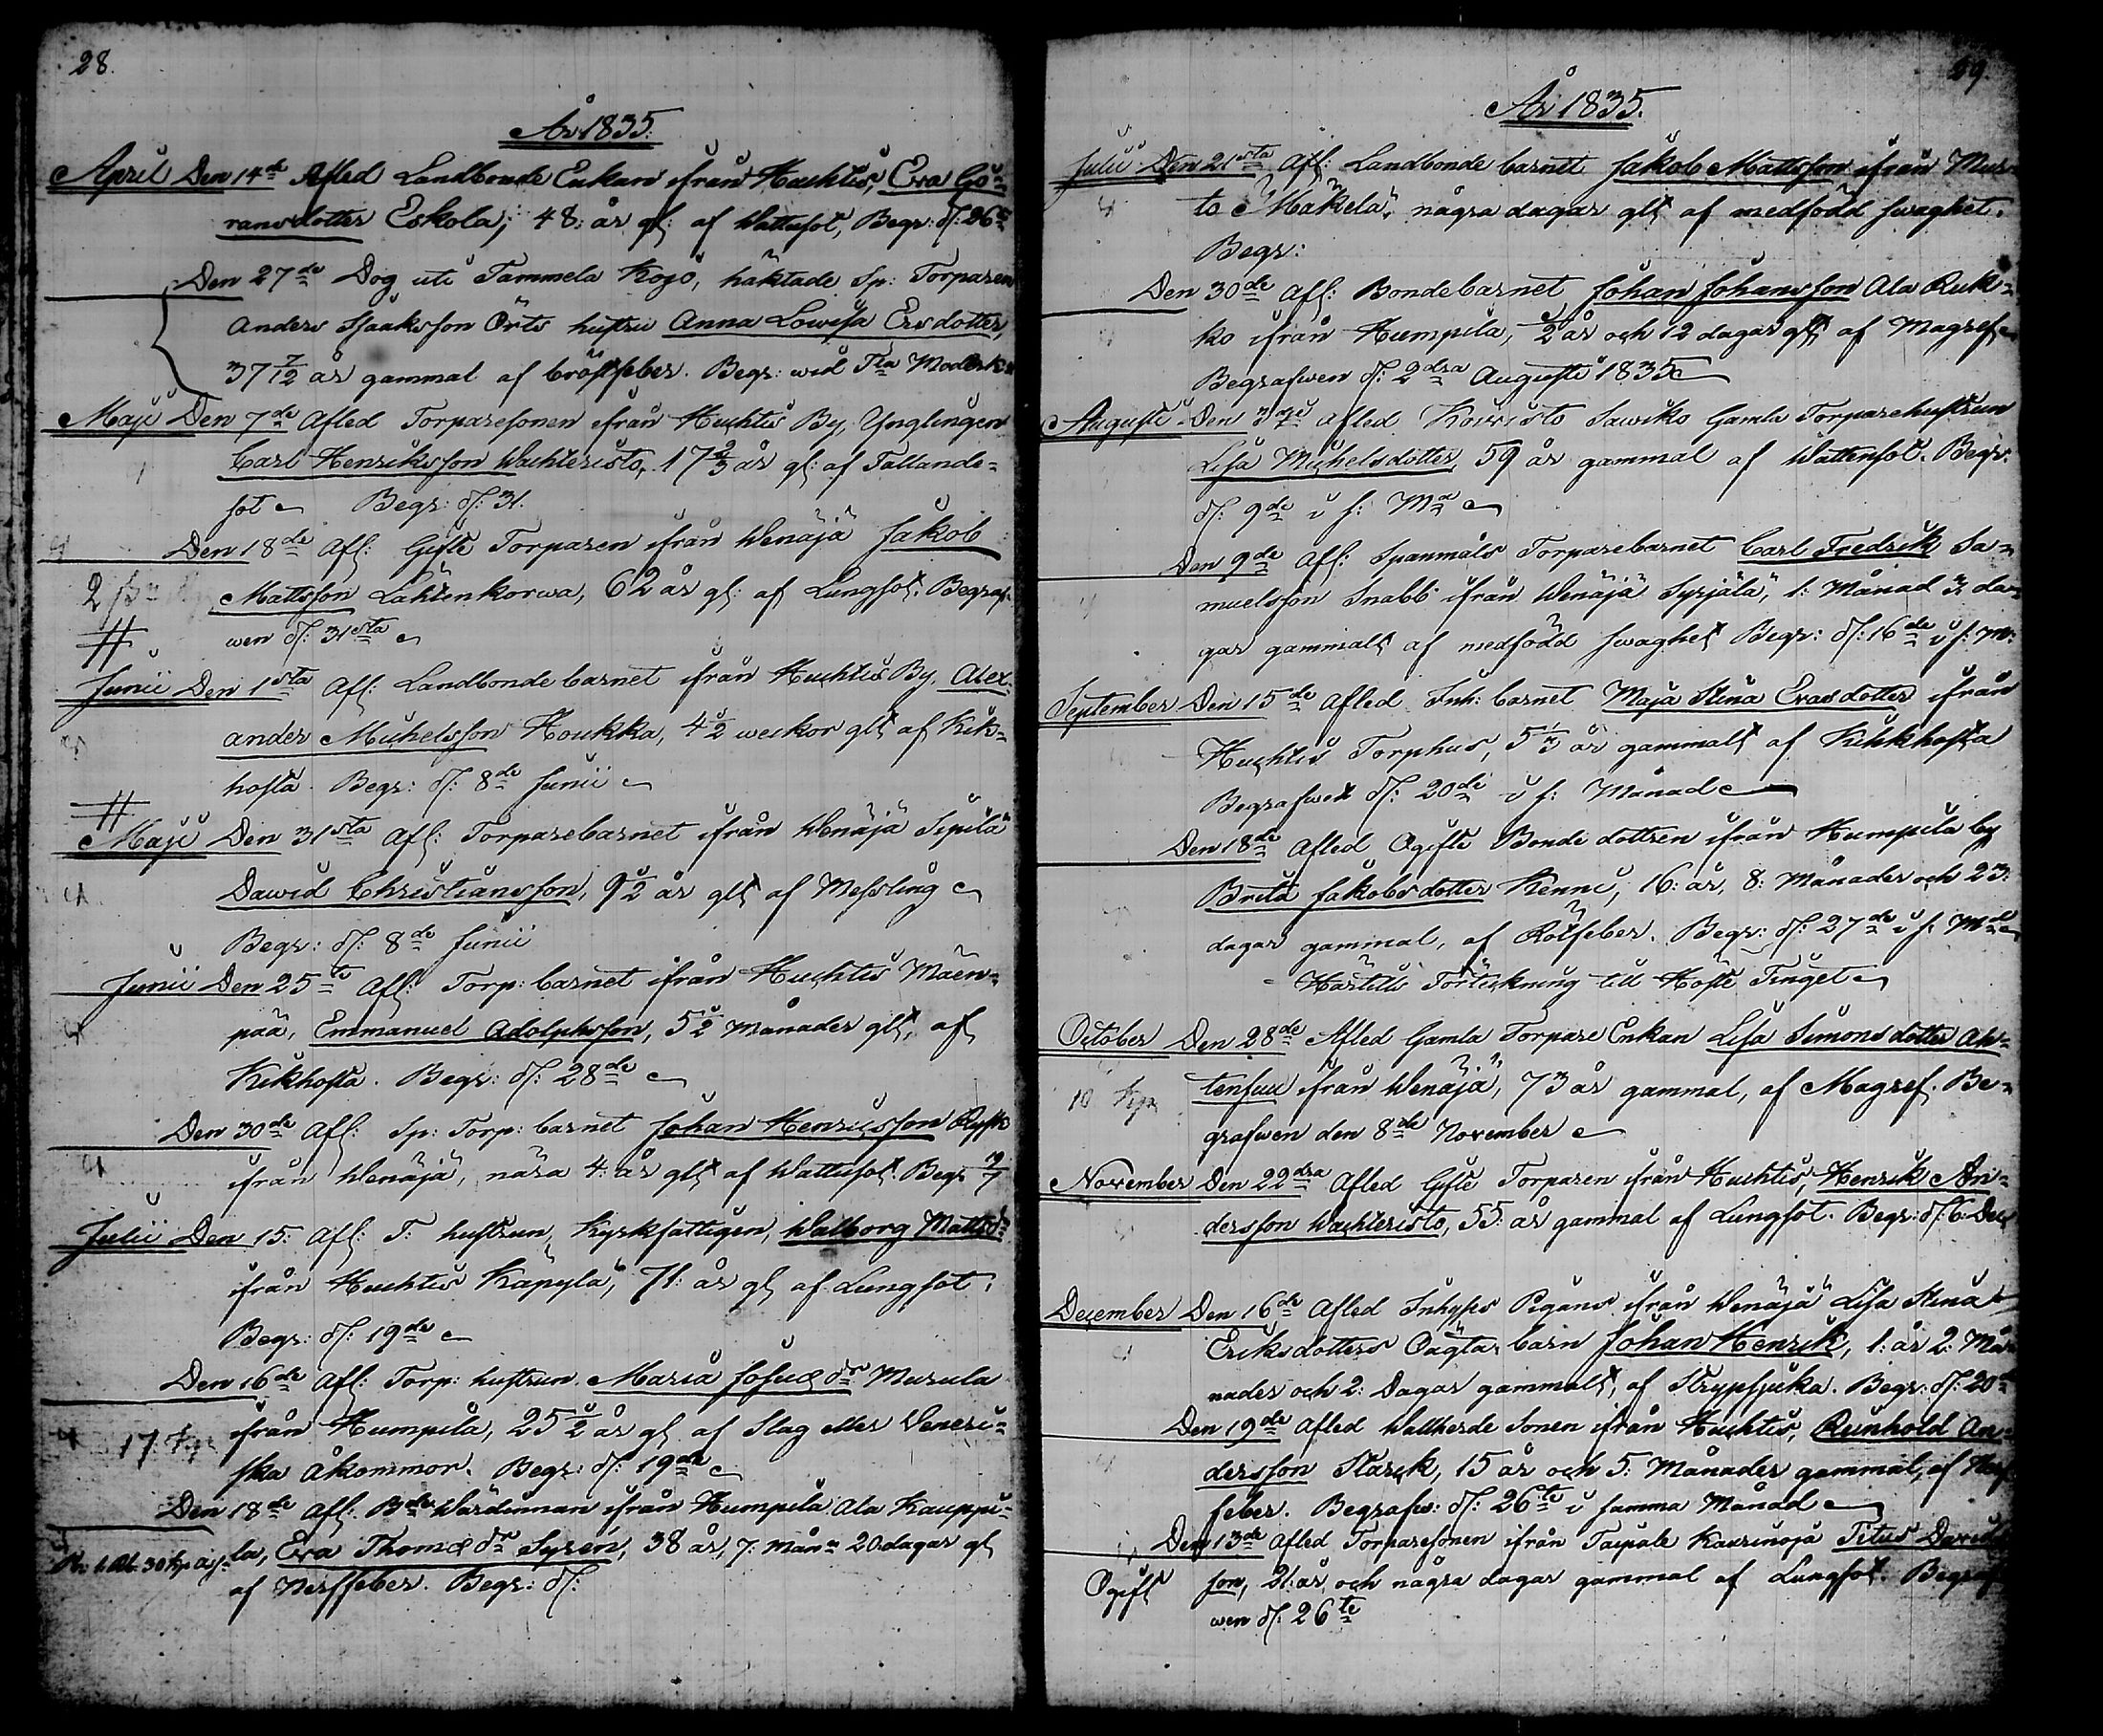 28.
År 1835.
April Den 14de Afled Landbonde Enkan ifrån Huhtis, Eva Gö-
ransdotter Eskola, 48. år gl: af Wattusot, Begr: d: 26
Den 27de Dog uti Tammela Kojo, häktade Sp: Torparen
Anders Isaaksson Örts hustru Anna Lowisa Ersdotter,
37 7/12 år gammal af bröstfeber. Begr: wid Tla Moderk:
Maji Den 7de Afled Torparesonen ifrån Huhtis By, Ynglingen
Carl Henriksson Wahteristo, 17 2/3 år gl: af Fallande-
sot Begr: d: 31.
Den 18de Afl: Gifte Torparen ifrån Wenäjä Jakob
Mattsson Lähtenkorwa, 62 år gl: af Lungsot. Begraf-
wen d: 31sta
Junii Den 1sta Afl: Landbonde barnet ifrån Huhtis By, Alex-
ander Michelsson Houkka, 4 1/2 weckor glt af Kik-
hosta. Begr: d: 8de Junii
Maji Den 31sta Afl: Torparebarnet ifrån Wenäjä Sipilä
Dawid Christiansson, 9 1/2 år glt af Messling
Begr: d: 8de Junii
Junii Den 25te Afl: Torp: barnet ifrån Huhtis Mäen-
pää, Emmanuel Adolphsson, 5 1/2 Månader glt, af
Kikhosta. Begr: d: 28de
Den 30de Afl: Sp: Torp: barnet Johan Henricsson
ifrån Wenäjä, nära 4: år glt af Wattusot. Begr 19/7
Julii Den 15: Afl: T: hustrun, Kyrkfattigen, Walborg Mattsd:
ifrån Huhtis Käpylä, 71: år gl af Lungsot.
Begr: d: 19de
Den 16de Afl: Torp: hustrun Maria Josuæ dr Murula
17. ifrån Humpila, 25 1/2 år gl af Slag eller Veneri-
ska åkommor. Begr: d: 19de
Den 18de Afl: Bde Wärdinnan ifrån Humpila Ala Kauppi-
la, Eva Thomæ dr Syrén, 38 år, 7: Mån: 20 dagar gl
af Nerffeber. Begr: d:
29.
År 1835.
Julii Den 21sta Afl: Landbonde barnet Jakob Mattsson ifrån Mur-
to Mäkelä, några dagar glt af medfödd swaghet.
Begr:
Den 30de Afl: Bondebarnet Johan Johansson Ala Ruk-
ko ifrån Humpila, 1/2 år och 12 dagar glt af Magref
Begrafwen d: 2dra Augusti 1835
Augusti Den 3dje Afled Koivisto Sawiko Gamla Torparehustrun
Lisa Michelsdotter, 59 år gammal af Wattensot. Begr:
d: 9de i s: Md
Den 9de Afl: Spanmåls Torparebarnet Carl Fredrik Sa-
muelsson Snabb ifrån Wenäjä Syrjälä, 1: Månad 3: da-
gar gammalt af medfödd swaghet Begr: d: 16de i s: M:
September Den 15de Afled Inh: barnet Maja Stina Evasdotter ifrån
Huhtis Torphus, 5 1/3 år gammalt af Kikhosta
Begrafwet d: 20de i s: Månad
Den 18de Afled Ogifte Bonde dottren ifrån Humpila by
Brita Jakobsdotter Kenni, 16: år, 8: Månader och 23:
dagar gammal, af Rötfeber. Begr: d: 27de i s: Md
Härtills Förteckning till Höste Tinget
October Den 28de Afled Gamla Torpare Enkan Lisa Simonsdotter Ah-
tensuu ifrån Wenäjä, 73 år gammal, af Magref. Be-
grafwen den 8de November
November Den 22dra Afled Gifte Torparen ifrån Huhtis, Henrik An-
dersson Wachteristo, 55: år gammal af Lungsot. Begr: d: 6: Dec
December Den 16de Afled Inhyses Pigans ifrån Wenäjä Lisa Stina
Eriksdotters Oägta barn Johan Henrik, 1: år 2: Må-
nader och 2: Dagar gammalt, af Strypsjuka. Begr: d: 20
Den 19de Afled Wallherde Sonen ifrån Huhtis, Reinhold An-
dersson Starck, 15 år och 5: Månader gammal, af
feber. Begrafw: d: 26te i samma Månad
Den 13de Afled Torparesonen ifrån Taipale Kaurinoja Titus Davids
Ogift son, 21: år och några dagar gammal af Lungsot. Begraf-
wen d: 26te